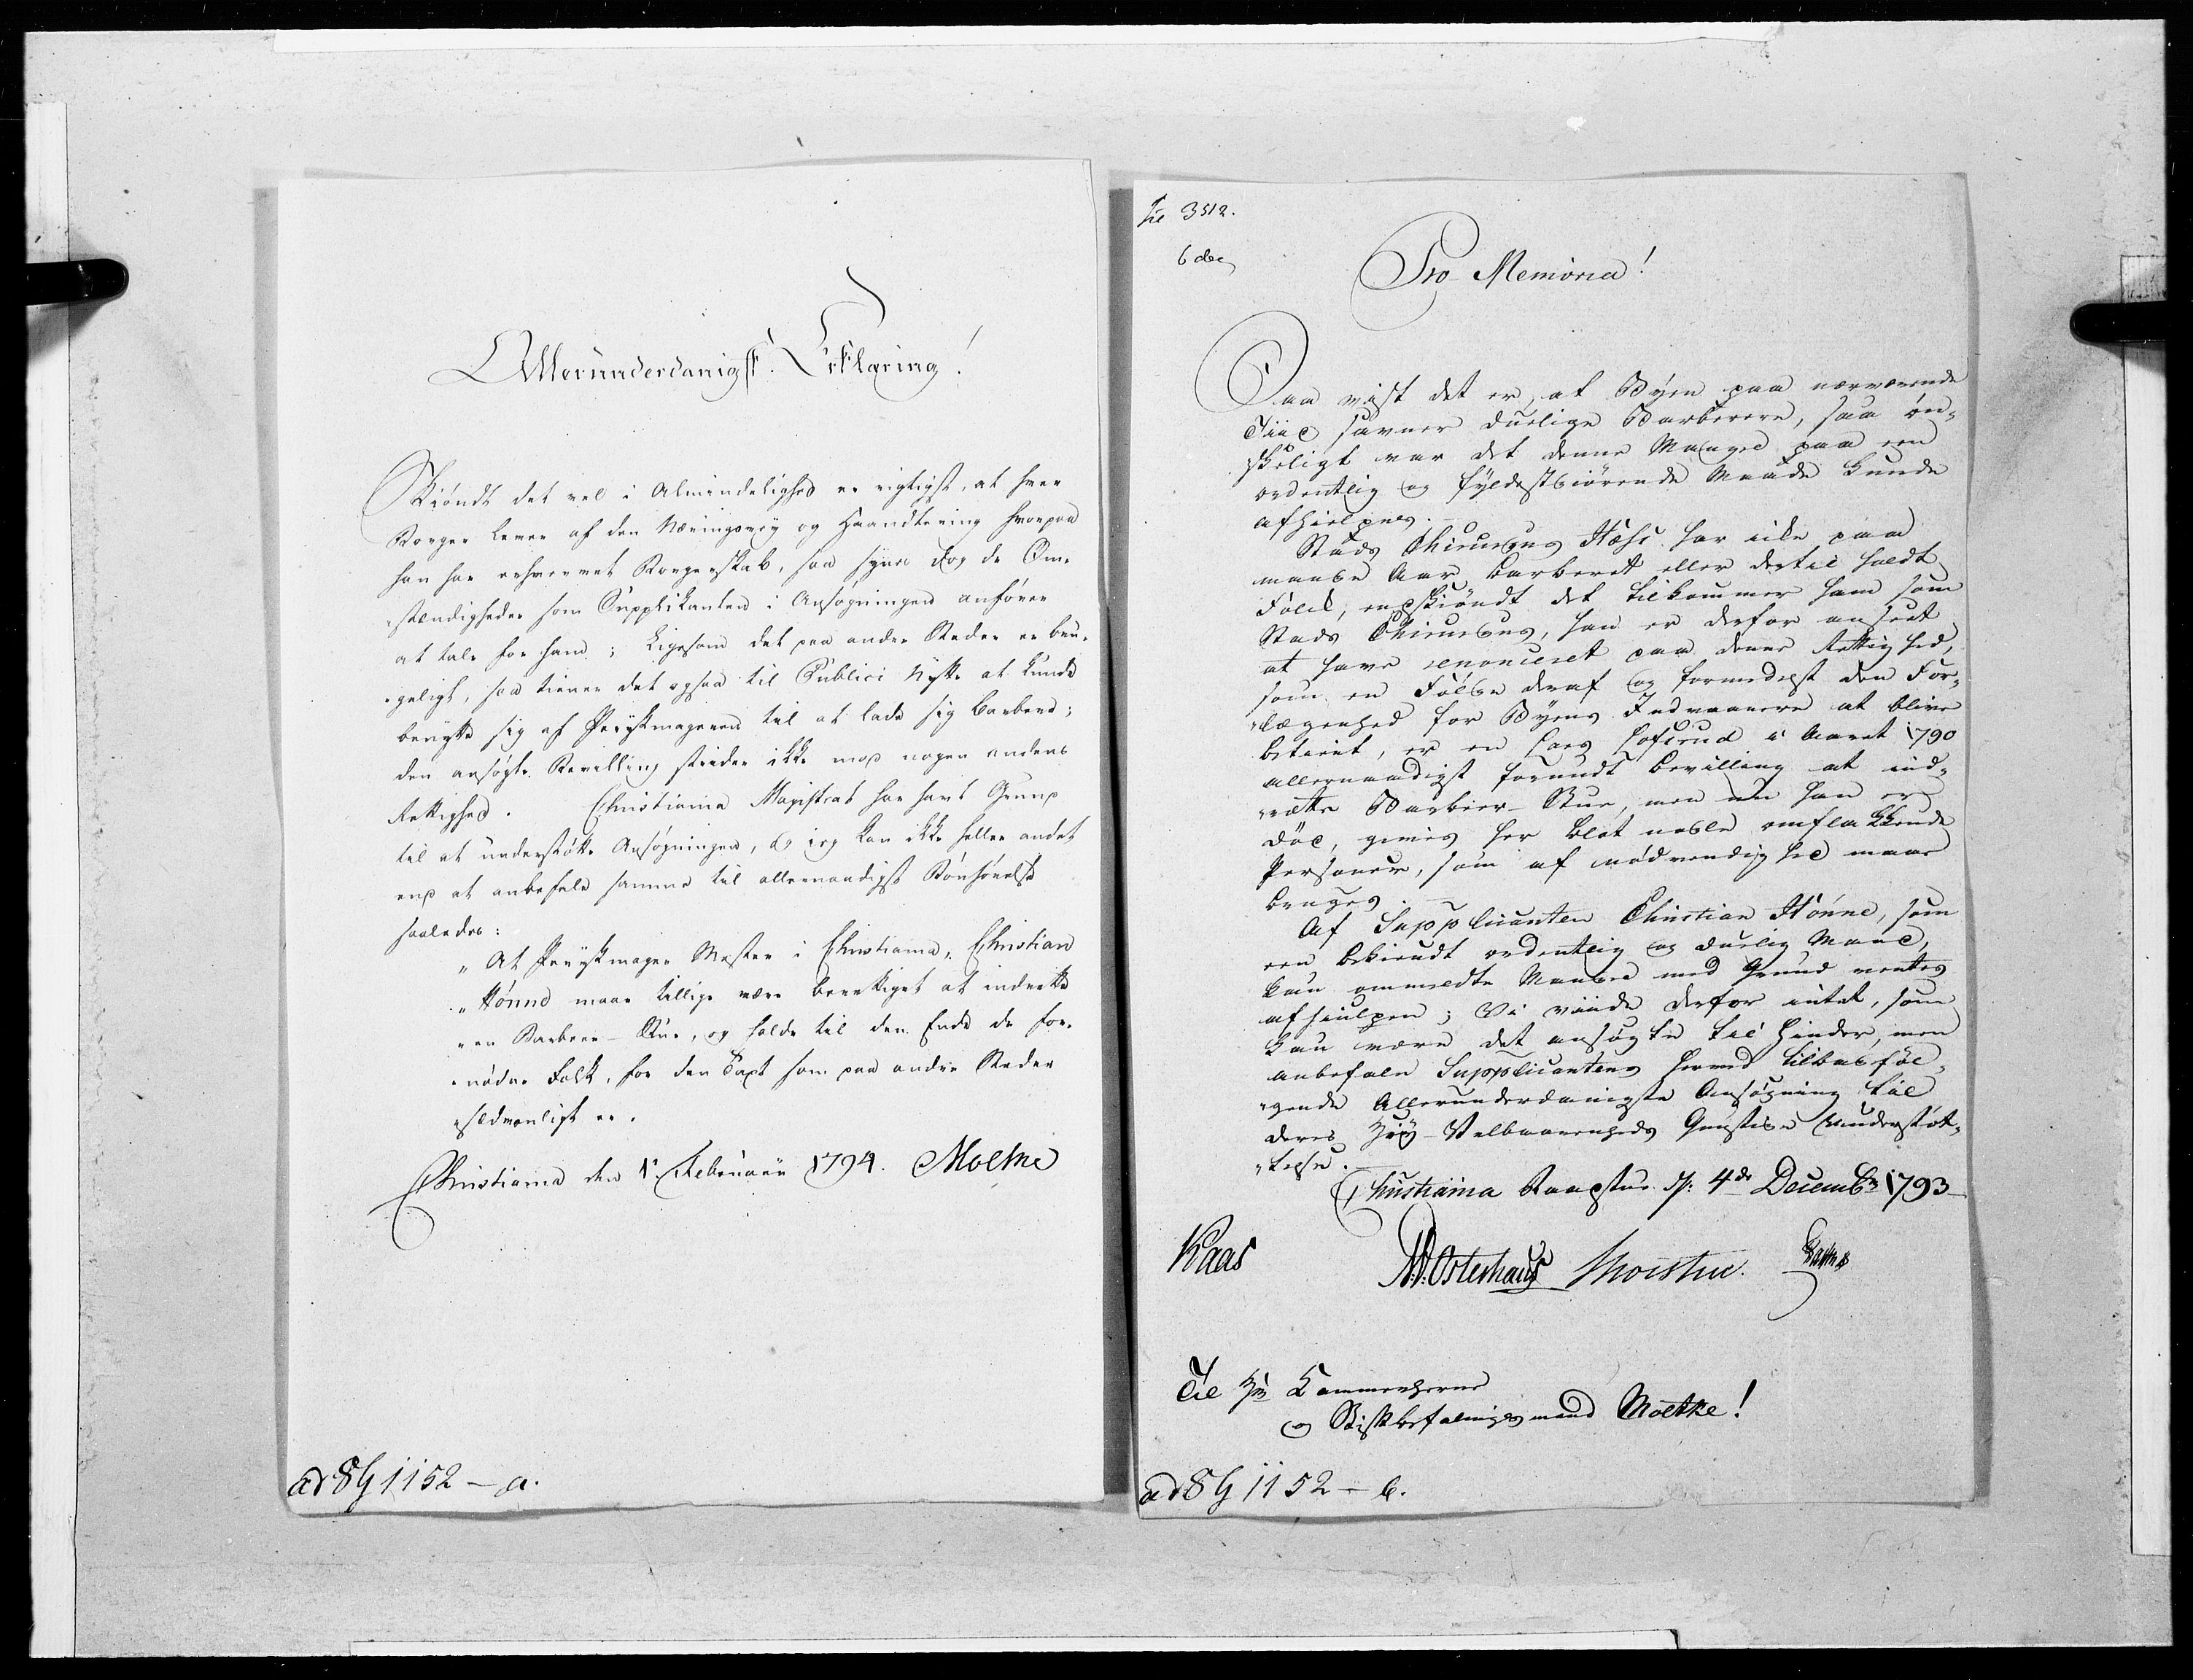 Allerunderdanigst Erklæring!
Skiøndt det vel i Almindelighed er rigtigst, at hver
Borger lever af den Næringsvey og Haandtering hvorpaa
han har erhvervet Borgerskab, saa synes dog de Om-
stændigheder som Supplikanten i Ansøgningen anfører
at tale for ham; Ligesom det paa andre Steder er bru-
geligt, saa tiener det ogsaa til Publici Nytte at kunde
benytte sig af Perykmageren til at lade sig barbere;
den ansøgte Bevilling strider ikke mod nogen andens
Rettighed. Christiania Magistrat har havt Grund
til at understøtte Ansøgningen, og ieg kan ikke heller andet
end at anbefale samme til allernaadigst Bønhørelse
saaledes:
"At Perykmager Mester i Christiania, Christian
"Hønne maae tillige være berettiget at indrette
"en Barbeer-Stue, og holde til den Ende de for-
"nødne Folk, for den Taxt som paa andre Steder
"sædvanligt er.
Christiania den 1. Februarii 1794. Moltke
ad 8G 1152 - a.
Til 3512.
6 dec
Pro Memoria!
Saa vist det er, at Byen paa nærværende
Tiid savner duelige Barberere, saa øn-
skeligt var det denne Mangel paa een
ordentlig og fyldestgiørende Maade kunde
afhielpes.
Stads Chirurgus Hæhs har ikke paa
mange Aar barberet eller dertil holdt
Folck, endskiøndt det tilkommer ham som
Stads Chirurgus, han er derfor anseet
at have renonceret paa denne Rettighed,
som en Følge deraf og formedelst den For-
"lægenhed for Byens Indvaanere at blive
betient, er en Lars Lofsrud i Aaret 1790
allernaadigst forundt Bevilling at ind-
"rette Barbier-Stue, men nu han er
død, gives her blot nogle omflakkende
Personer, som af nødvendighed maae
bruges.
Af Supplicanten Christian Hønne, som
een bekiendt ordentlig og duelig Mand,
kan ommeldte Mangel med Grund ventes
afhiulpen; Vi viide derfor intet, som
kan være det ansøgte til Hinder, men
anbefale Supplicantens hermed tilbagføl-
"gende Allerunderdanigste Ansøgning til
Deres Høy-Velbaarenheds Gunstige Understøt-
"telse.
Christiania Raadstue d: 4de Decembr 1793
Kaas Osterhaus Thorstue.
Til Hr Kammerherre
og Stiftbefalingsmand Moltke!
ad 8G 1152 - b.